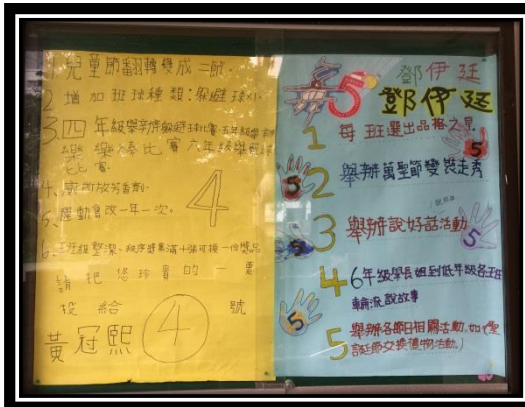 1. 兒童節翻轉變成二節.
2 增加班球種類：躲避球
3. 四年級舉辦躲避球比賽 五年級舉辦
樂樂棒比賽六年級舉
比賽
4. 放芳香劑.
5. 運動會改一年一次。
6. 班級整潔、秩序獎集滿十張可換一份獎品
請把您珍貴的一票
投給 號
黃冠熙 4
4
5 鄧伊廷
鄧伊廷
1 每班選出品格之星
5
2 舉辦萬聖節變裝走秀
5
3 舉辦說好話活動
5
4 6年級學長姐到低年級各班
輪流說故事
5
5 舉辦各節日相關活動.如(聖
誕節交換禮物活動.)